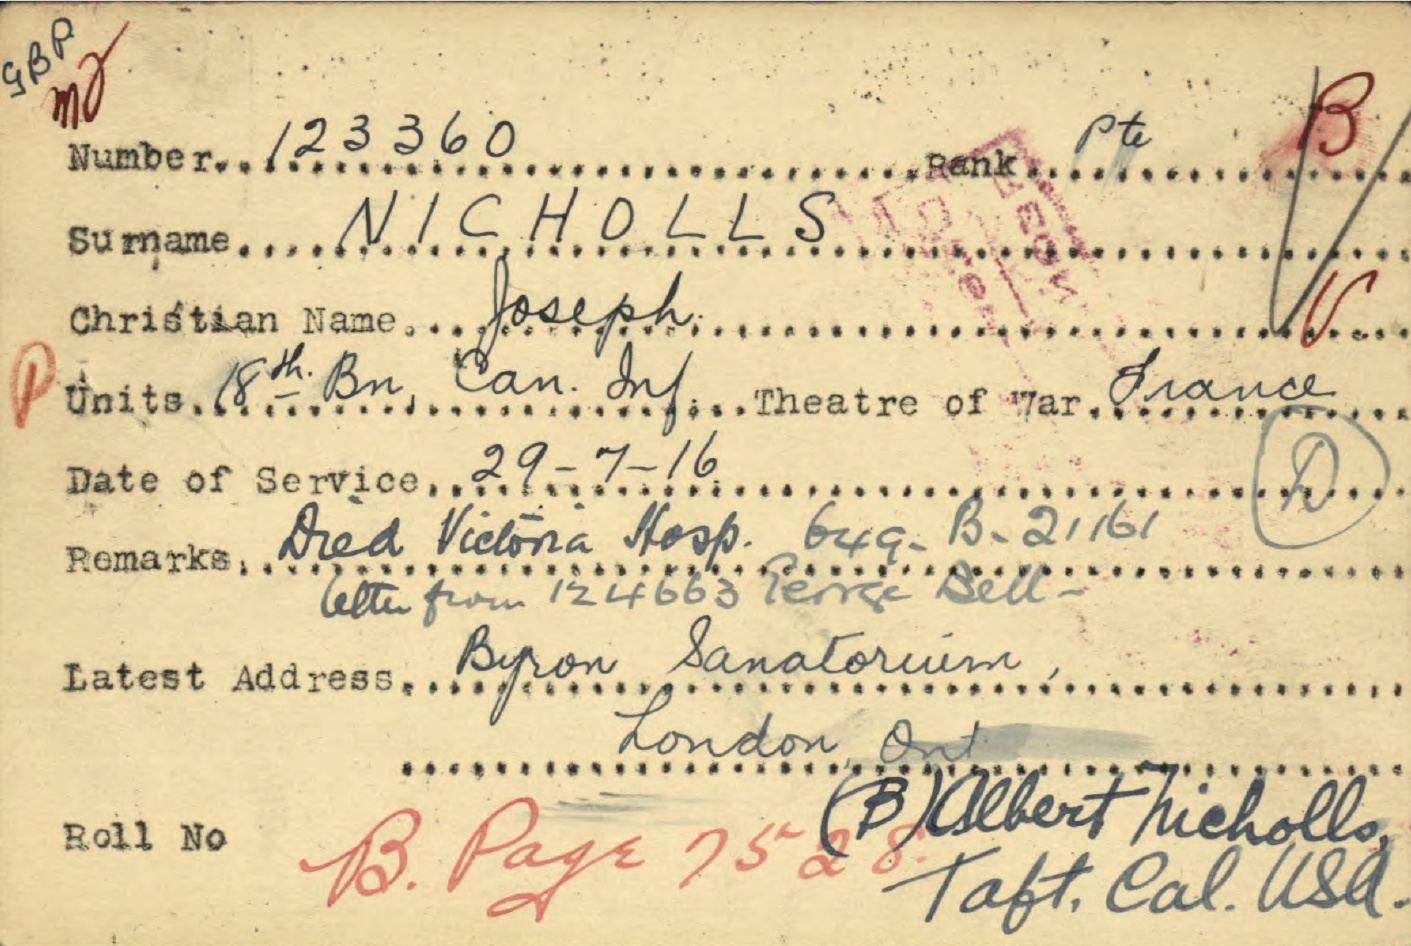 GBP
Number 123360 Rank Pte B
Surname NICHOLLS
Christian Name Joseph V
P Units 18th Bn, Can. Inf. Theatre of War France
Date of Service 29-7-16 D
Remarks Died Victoria Hosp. 649-B-21161
letter from 124663 George Bell-
Latest Address Byron Sanatorium,
London, Ont
(B) Albert Nicholls,
Roll No B. Page 7528.
Taft. Cal. USA.